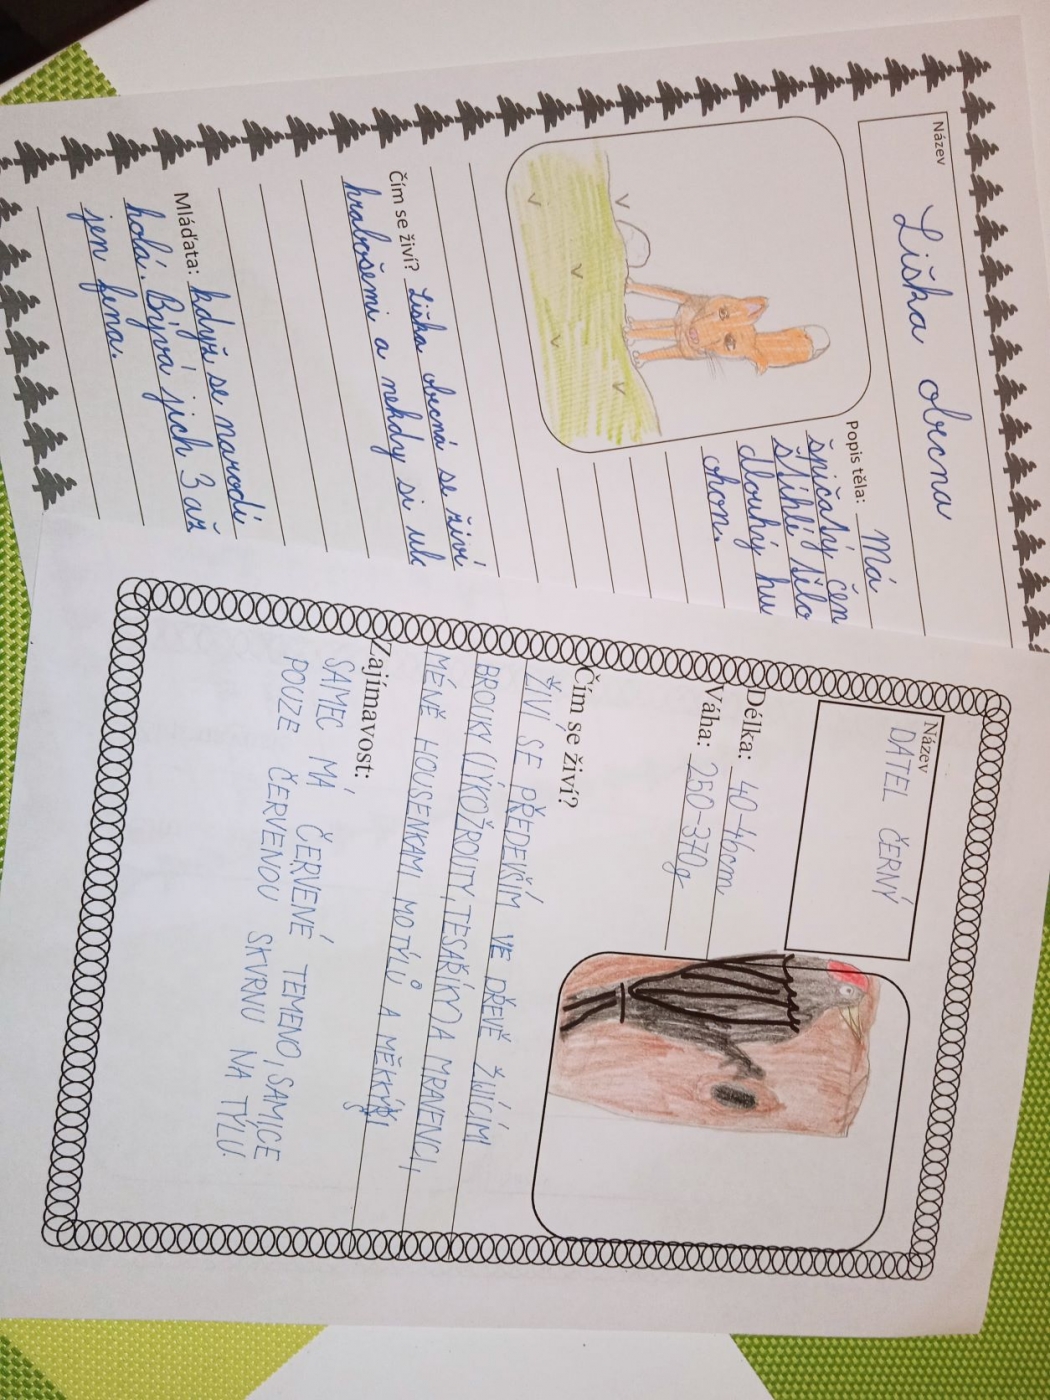 Název
Liška obecna
Popis těla: Má
špičatý čen
štíhlé tělo
dlouhý hu
ohon.
Čím se živí? Liška obecná se živí
hrabošemi a nekdy si ulo
Mláďata: když se narodí
holá. Bývá jich 3 až
jen fena.
Název
DATEL ČERNÝ
Délka: 40-46cm
Váha: 250-370g
Čím se živí?
ŽIVÍ SE PŘEDEVŠÍM VE DŘEVĚ ŽIJÍCÍMI
BROUKY (LÝKOŽROUTY, TESAŘÍKY) A MRAVENCI,
MÉNĚ HOUSENKAMI MOTÝLŮ A MĚKKÝŠI
Zajímavost:
SAMEC MÁ ČERVENÉ TEMENO, SAMICE
POUZE ČERVENOU SKVRNU NA TÝLU.